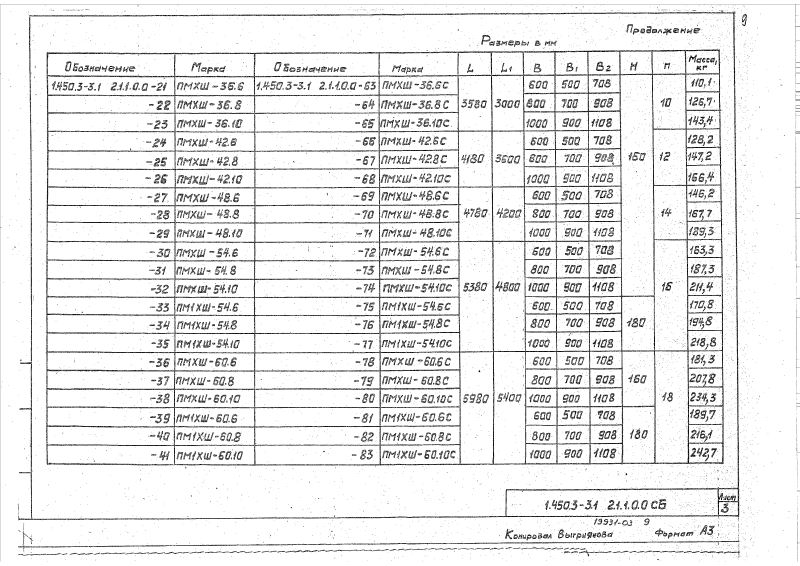 9
Продолжение
Размеры в мм
Обозначение Марка Обозначение Марка L L1 B B1 B2 H n Масса, кг
1.450.3-3.1 2.1.1.0.0-21 ПМХШ-36.6 1.450.3-3.1 2.1.1.0.0-63 ПМХШ-36.6С 600 500 708 110,1
-22 ПМХШ-36.8 -64 ПМХШ-36.8С 3580 3000 800 700 908 10 126,7
-23 ПМХШ-36.10 -65 ПМХШ-36.10С 1000 900 1108 143,4
-24 ПМХШ-42.6 -66 ПМХШ-42.6С 600 500 708 128,2
-25 ПМХШ-42.8 -67 ПМХШ-42.8С 4180 3600 800 700 908 160 12 147,2
-26 ПМХШ-42.10 -68 ПМХШ-42.10С 1000 900 1108 166,4
-27 ПМХШ-48.6 -69 ПМХШ-48.6С 600 500 708 146,2
-28 ПМХШ-48.8 -70 ПМХШ-48.8С 4780 4200 800 700 908 14 167,7
-29 ПМХШ-48.10 -71 ПМХШ-48.10С 1000 900 1108 189,3
-30 ПМХШ-54.6 -72 ПМХШ-54.6С 600 500 708 163,3
-31 ПМХШ-54.8 -73 ПМХШ-54.8С 800 700 908 187,3
-32 ПМХШ-54.10 -74 ПМХШ-54.10С 5380 4800 1000 900 1108 16 211,4
-33 ПМ1ХШ-54.6 -75 ПМ1ХШ-54.6С 600 500 708 170,8
-34 ПМ1ХШ-54.8 -76 ПМ1ХШ-54.8С 800 700 908 180 194,8
-35 ПМ1ХШ-54.10 -77 ПМ1ХШ-54.10С 1000 900 1108 218,8
-36 ПМХШ-60.6 -78 ПМХШ-60.6С 600 500 708 181,3
-37 ПМХШ-60.8 -79 ПМХШ-60.8С 800 700 908 160 207,8
-38 ПМХШ-60.10 -80 ПМХШ-60.10С 5980 5400 1000 900 1108 18 234,3
-39 ПМ1ХШ-60.6 -81 ПМ1ХШ-60.6С 600 500 708 189,7
-40 ПМ1ХШ-60.8 -82 ПМ1ХШ-60.8С 800 700 908 180 216,1
-41 ПМ1ХШ-60.10 -83 ПМ1ХШ-60.10С 1000 900 1108 242,7
1.450.3-3.1 2.1.1.0.0 СБ
Лист
3
19931-03 9
Копировал Выгриянова Формат А3